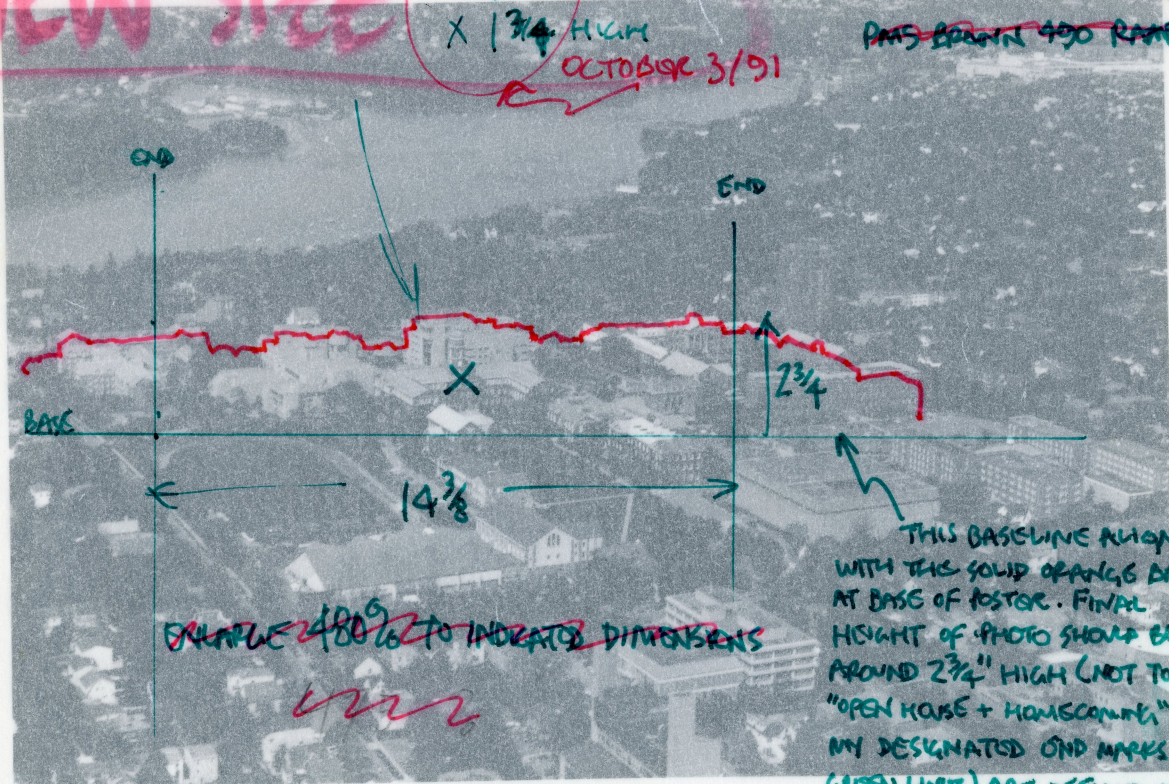 NEW SIZE
X 1 3/4 HIGH
OCTOBER 3/91
END
END
BASE
2 3/4
14 3/8
ENLARGE 480% TO INDICATED DIMENSIONS
THIS BASELINE ALIGN
WITH THE SOLID ORANGE
AT BASE OF POSTER. FINAL
HEIGHT OF PHOTO SHOULD B
AROUND 2 3/4" HIGH (NOT TO
"OPEN HOUSE + HOMECOMING"
MY DESIGNATED END MARKS